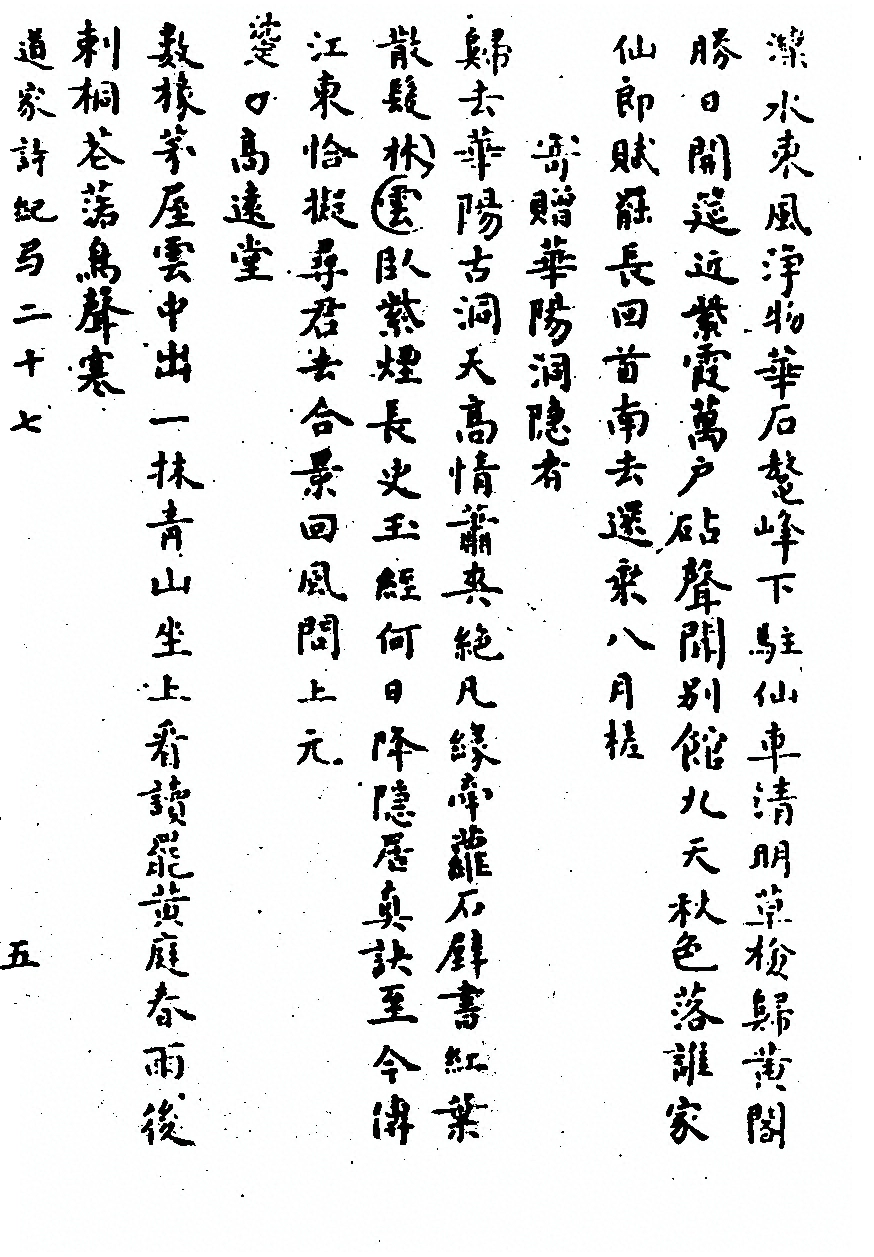 灤水東風淨物華石鰲峰下駐仙車清明草檢歸黃閣
勝日開筵近紫霞萬戶砧聲開別館九天秋色落誰家
仙郎賦罷長回首南去還乘八月槎
寄贈華陽洞隱者
歸去華陽古洞天高情蕭爽絕凡緣牽蘿石壁書紅葉
散髮林雲臥紫煙長史玉經何日降隱居真訣至今傳
江東恰擬尋君去合景回風問上元
高遠堂
數椽茅屋雲中出一抹青山坐上看讀罷黃庭春雨後
刺桐花落鳥聲寒
道家詩紀弓二十七
五